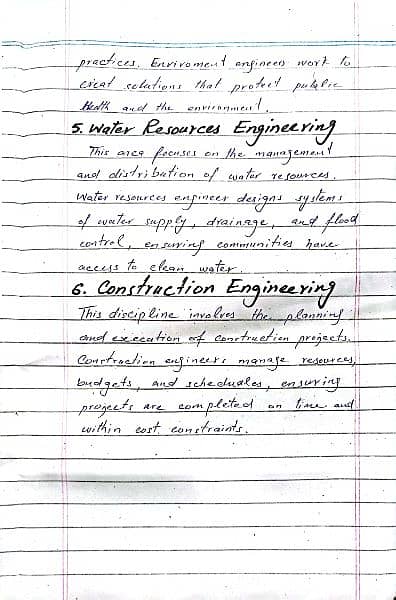 practices. Enviroment engineers work to
creat solutions that protect public
Health and the environment.
5. Water Resources Engineering
This area focuses on the management
and distribution of water resources.
Water resources engineer designs systems
of water supply, drainage, and flood
control, ensuring communities have
access to clean water.
6. Construction Engineering
This discipline involves the planning
and execation of construction projects.
Construction engineers manage resources,
budgets, and scheduales, ensuring
projects are completed on time and
within cost constraints.